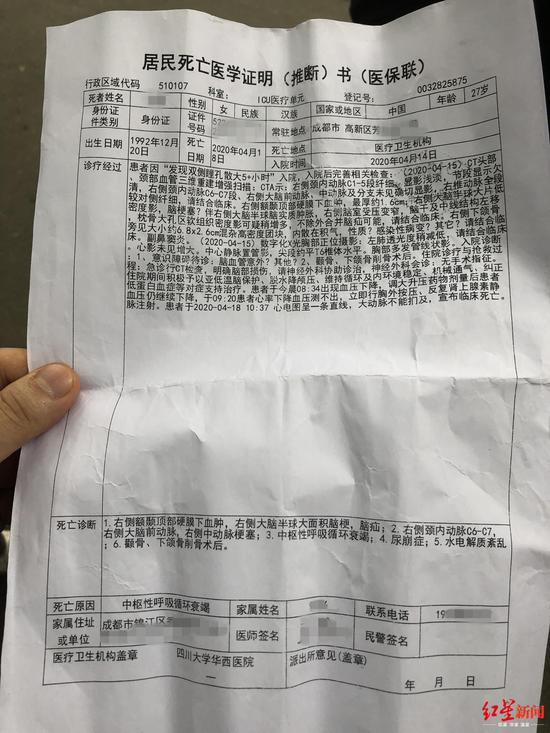 居民死亡医学证明（推断）书（医保联）
行政区域代码 510107 科室： ICU医疗单元 登记号： 0032825875
死者姓名 性别 女 民族 汉族 国家或地区 中国 年龄 27岁
身份证件类别 身份证 证件号码 常驻地点 成都市 高新区
出生日期 1992年12月20日 死亡日期 2020年04月18日 死亡地点 医疗卫生机构
入院时间 2020年04月14日
诊疗经过
患者因"发现双侧瞳孔散大5+小时"入院，入院后完善相关检查：（2020-04-15）CT头部
、颈部血管三维重建增强扫描：CTA示：右侧颈内动脉C1-5段纤细，显影浅淡，节段显示欠
清，右侧颈内动脉C6-C7段、右侧大脑前动脉、中动脉及分支未见确切显影；右椎动脉全段
较对侧纤细，请结合临床。右侧额颞顶部硬膜下血肿，最厚约1.6cm；右侧大脑半球大片低
密度影，脑梗塞？伴右侧大脑半球脑实质肿胀，右侧脑室受压变窄，
枕骨大孔区软组织密度影可疑稍增多，不除外合并脑疝可能，请结合临床。右侧下颌骨
旁见大小约6.8×2.6cm混杂高密度团块，内散在积气，性质？感染性病变？其它？请结合临
床。副鼻窦炎。（2020-04-15）数字化X光胸部正位摄影：左肺透光度稍减低，
心影未见增大。中心静脉置管影，尖端约平T6椎体水平，胸部多发管线状影。入院诊断
：1、意识障碍待诊：脑血管意外？其他？2、颧骨、下颌骨削骨术后。住院诊疗与抢救过
程：急诊行CT检查，明确脑部损伤，请神经外科协助诊治，神经外科会诊：无手术指征。
住院期间积极予以亚低温脑保护、脱水降颅压、维持循环及内环境稳定、机械通气、纠正
低蛋白血症等对症支持治疗。患者于今晨08:34出现血压下降，调大升压药物剂量后患者
血压仍继续下降，于09:20患者心率下降血压测不出，立即行胸外按压、反复肾上腺素静
脉注射。患者于2020-04-18 10:37 心电图呈一条直线，大动脉不能扪及，宣布临床死亡。
死亡诊断
1.右侧额颞顶部硬膜下血肿，右侧大脑半球大面积脑梗，脑疝；2.右侧颈内动脉C6-C7，
右侧大脑前动脉，右侧中动脉梗塞；3.中枢性呼吸循环衰竭；4.尿崩症；5.水电解质紊乱
；6.颧骨、下颌骨削骨术后。
死亡原因 中枢性呼吸循环衰竭 家属姓名 联系电话 19
家属住址或单位 成都市锦江区 医师签名 民警签名
医疗卫生机构盖章 四川大学华西医院 派出所意见（盖章）
年 月 日
红星新闻